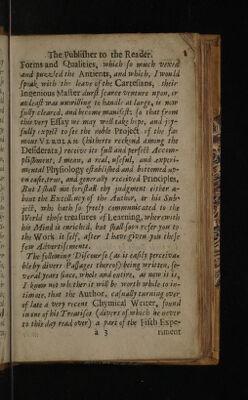 The Publisher to the Reader.
Forms and Qualities, which so much vexed
and puzzled the Antients, and which, I would
speak with the leave of the Cartesians, their
Ingenious Master durst scarce venture upon, or
at least was unwilling to handle at large, is now
fully cleared, and become manifest: so that from
this very Essay we may well take hope, and joy-
fully expect to see the noble Project of the fa-
mous VERULAM (hitherto reckond among the
Desiderata) receive its full and perfect Accom-
plishment, I mean, a real, useful, and experi-
mental Physiology established and bottomed up-
on easie, true, and generally received Principles.
But I shall not forestall thy judgment either a-
bout the Excellency of the Author, or his Sub-
ject, who hath so freely communicated to the
World those treasures of Learning, wherewith
his Mind is enriched, but shall soon refer you to
the Work it self, after I have given you these
few Advertisements.
The following Discourse (as is easily perceiva-
ble by divers Passages thereof) being written, se-
veral years since, whole and entire, as now it is,
I know not whether it will be worth while to in-
timate, that the Author, casually turning over
of late a very recent Chymical Writer, found
in one of his Treatises (divers of which he never
to this day read over) a part of the Fifth Expe-
a 3 riment